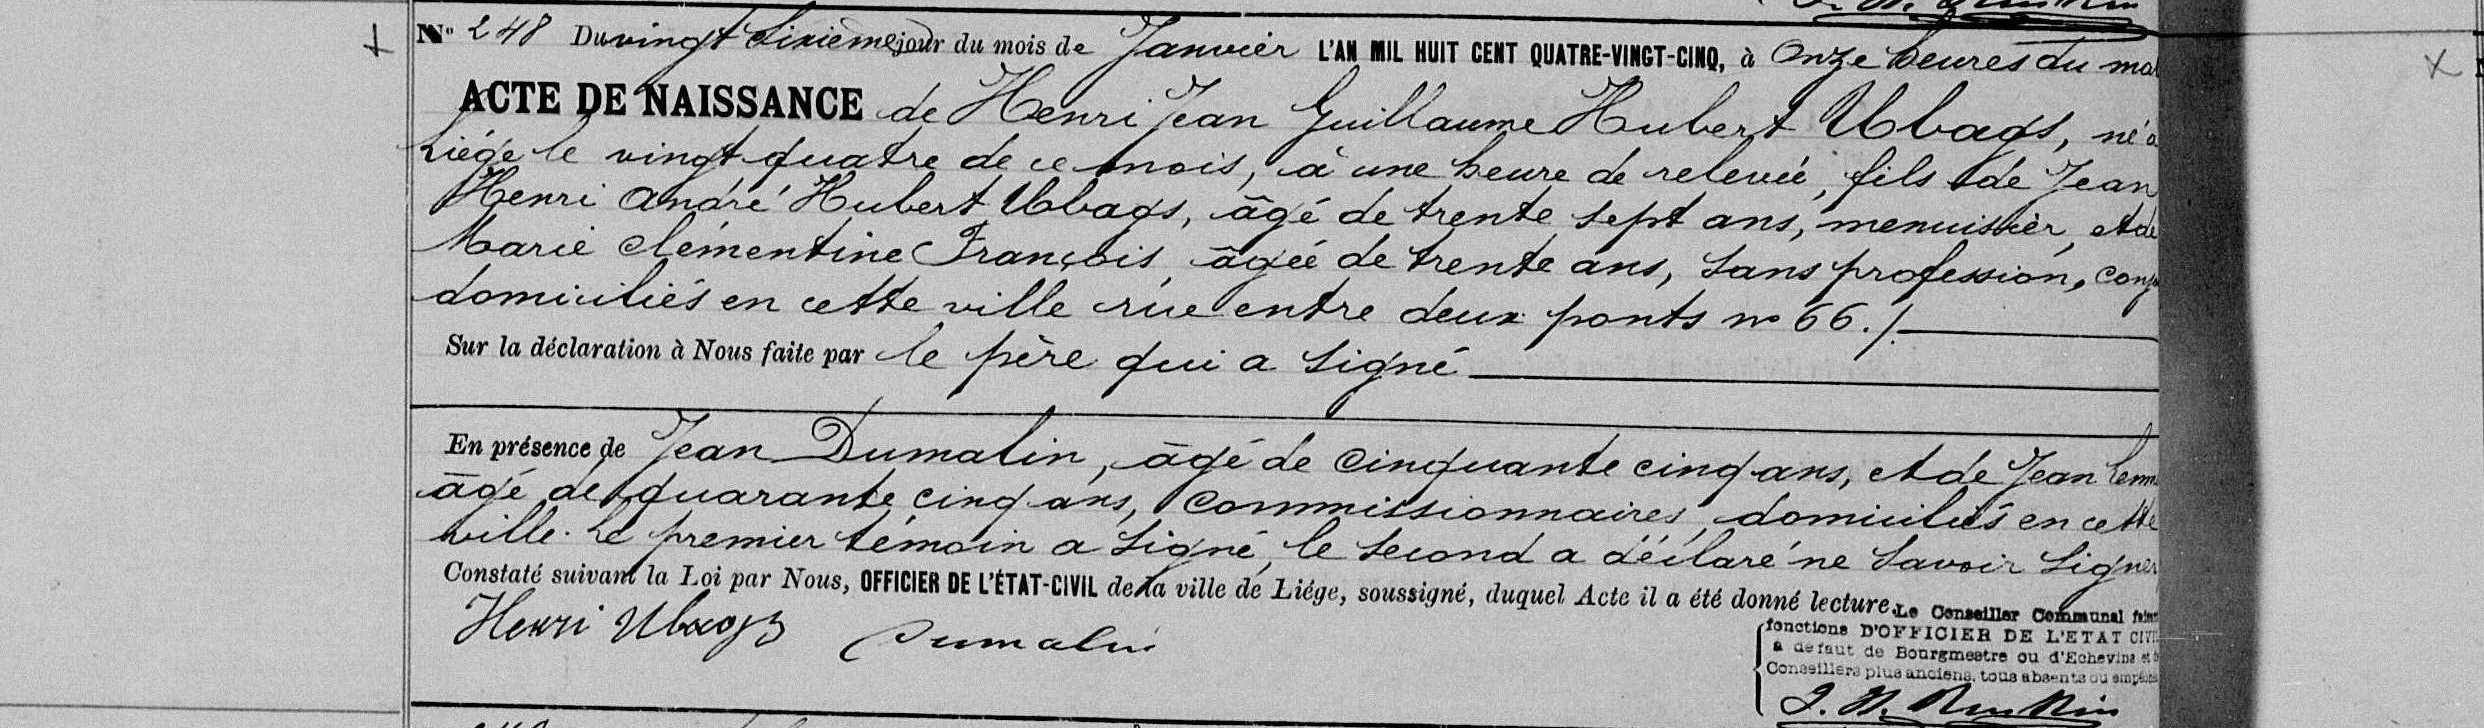 No 248 Du vingt sixième jour du mois de Janvier L'AN MIL HUIT CENT QUATRE-VINGT-CINQ, à onze heures du mat
ACTE DE NAISSANCE de Henri Jean Guillaume Hubert Ubags, né à
Liége le vingt quatre de ce mois, à une heure de relevée, fils de Jean
Henri André Hubert Ubags, âgé de trente sept ans, menuisier, et de
Marie Clémentine François, âgée de trente ans, sans profession, conj
domiciliés en cette ville rue entre deux ponts no 66./.
Sur la déclaration à Nous faite par le père qui a signé
En présence de Jean Dumalin, âgé de cinquante cinq ans, et de Jean
âgé de quarante cinq ans, commissionnaires, domiciliés en cette
ville. Le premier témoin a signé, le second a déclaré ne savoir signer
Constaté suivant la Loi par Nous, OFFICIER DE L'ÉTAT-CIVIL de la ville de Liége, soussigné, duquel Acte il a été donné lecture.
Le Conseiller Communal faisant
fonctions D'OFFICIER DE L'ETAT CIVIL
à defaut de Bourgmestre ou d'Echevins et de
Conseillers plus anciens, tous absents ou empêchés
Henri Ubags Dumalin